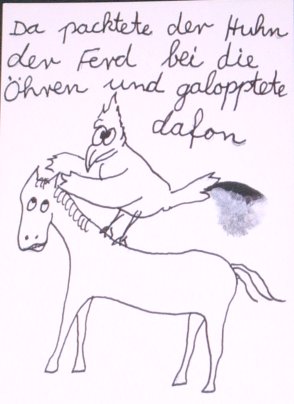 Da packtete der Huhn
der Ferd bei die
Öhren und galopptete
dafon